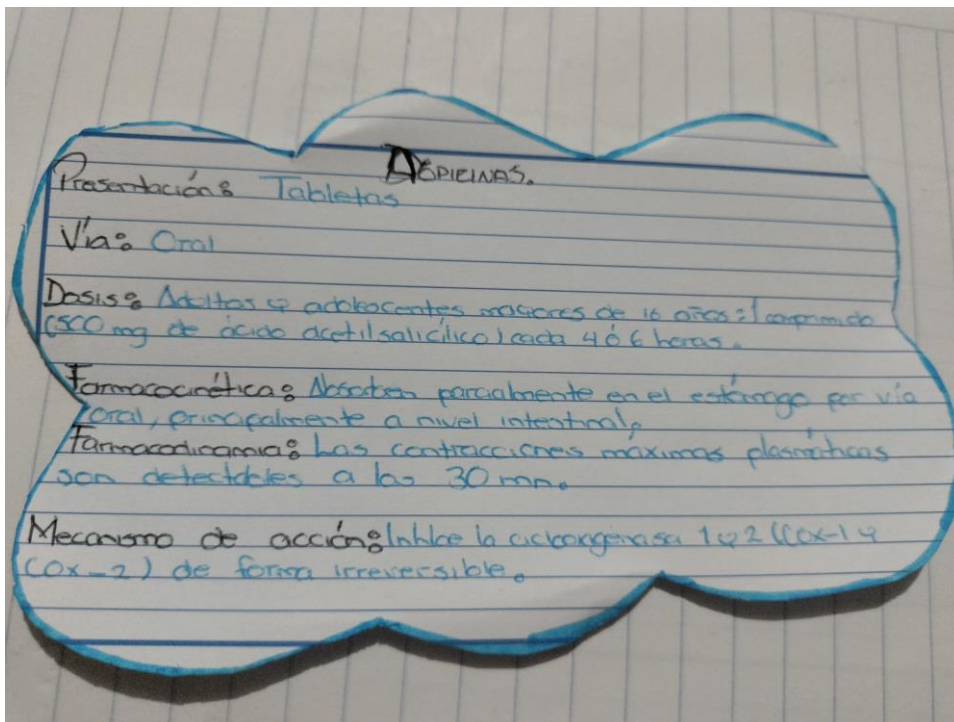 ASPIRINAS.
Presentación: Tabletas
Vía: Oral
Dosis: Adultos y adolescentes mayores de 16 años: 1 comprimido
(500 mg de ácido acetilsalicílico) cada 4 ó 6 horas.
Farmacocinética: Absorben parcialmente en el estómago por vía
oral, principalmente a nivel intestinal.
Farmacodinamia: Las contracciones máximas plasmáticas
son detectables a las 30 mn.
Mecanismo de acción: Inhibe la ciclooxgenasa 1 y 2 (COX-1 y
COX-2) de forma irreversible.